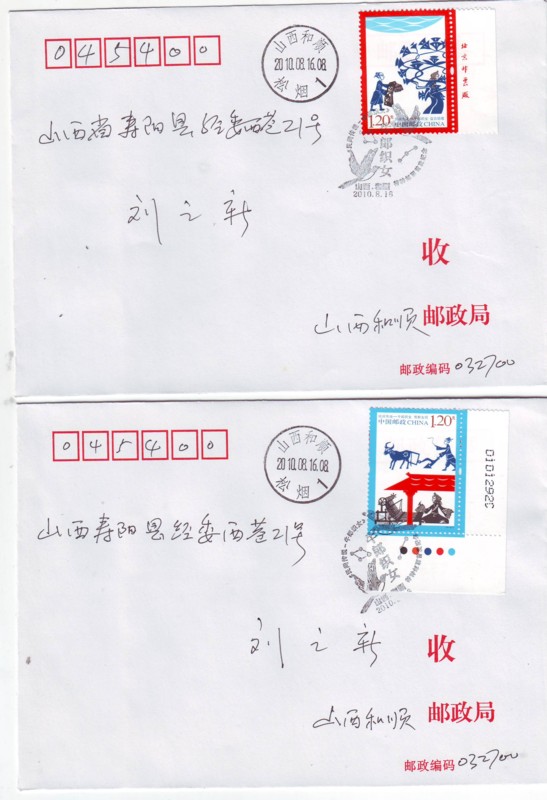 045400
山西和顺
2010.08.16.08
松烟 1
北京邮票厂
1.20元
中国邮政 CHINA
山西省寿阳县经委西巷21号
郎织女
山西·和顺
2010.8.16
刘之新
收
山西和顺 邮政局
邮政编码 032700
045400
山西和顺
2010.08.16.08
松烟 1
中国邮政 CHINA 1.20元
D1D1292C
山西寿阳县经委西巷21号
郎织女
刘之新 收
山西和顺 邮政局
邮政编码 032700